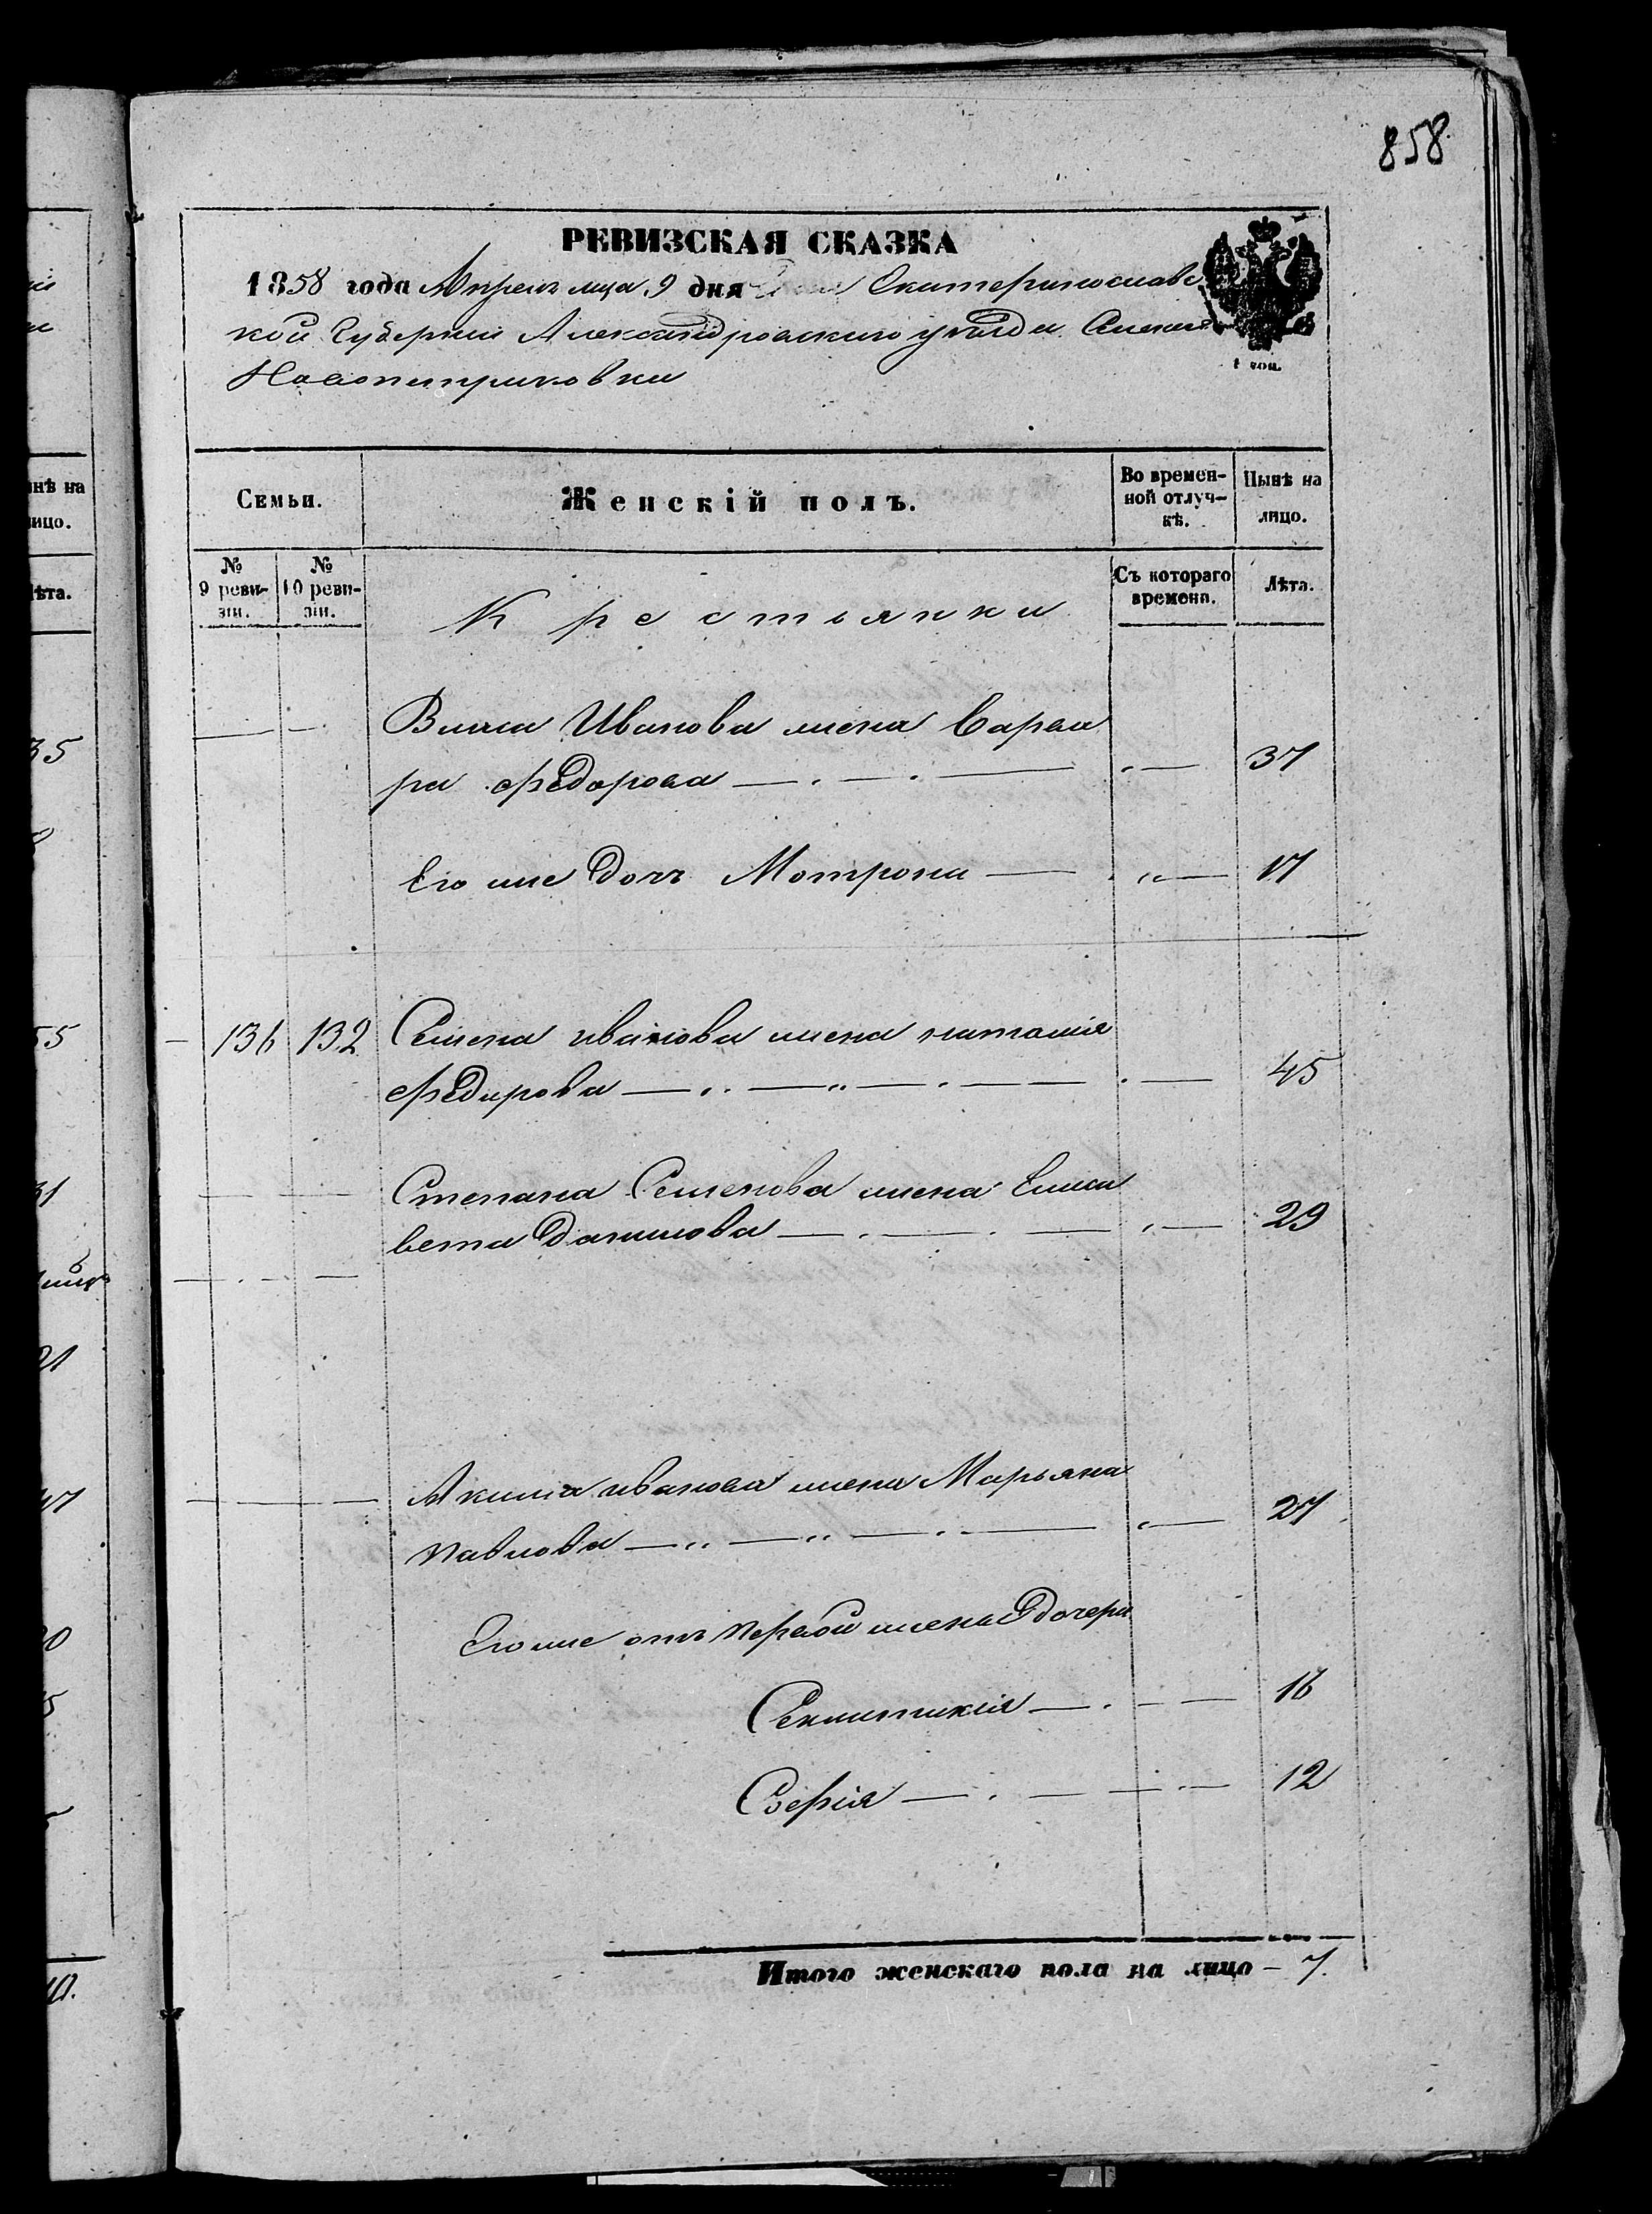 858
РЕВИЗСКАЯ СКАЗКА
1858 года Апреля мца 9 дня Екатеринославс
кой Губерніи Александровскаго уезда Селенія
Новопетриковки
1 коп.
Семьи.
Женскій полъ.
Во времен-
ной отлуч-
кѣ.
Нынѣ на
лицо.
№
9 реви-
зіи.
№
10 реви-
зіи.
Крестьянки
Съ котораго
времени.
Лѣта.
Власа Иванова жена Варва
ра Федорова 37
Его же дочь Мотрона 17
136 132 Семена иванова жена наталія
Федорова 45
Степана Семенова жена Елиса
вета Данилова 29
Акима иванова жена Марьяна
Павлова 27
Его же отъ первой жены дочери
Секлитикія 16
Софія 12
Итого женскаго пола на лицо – 7.
нѣ на
ицо.
ѣта.
35
55
31
21
47